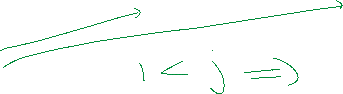 i < j ⇒